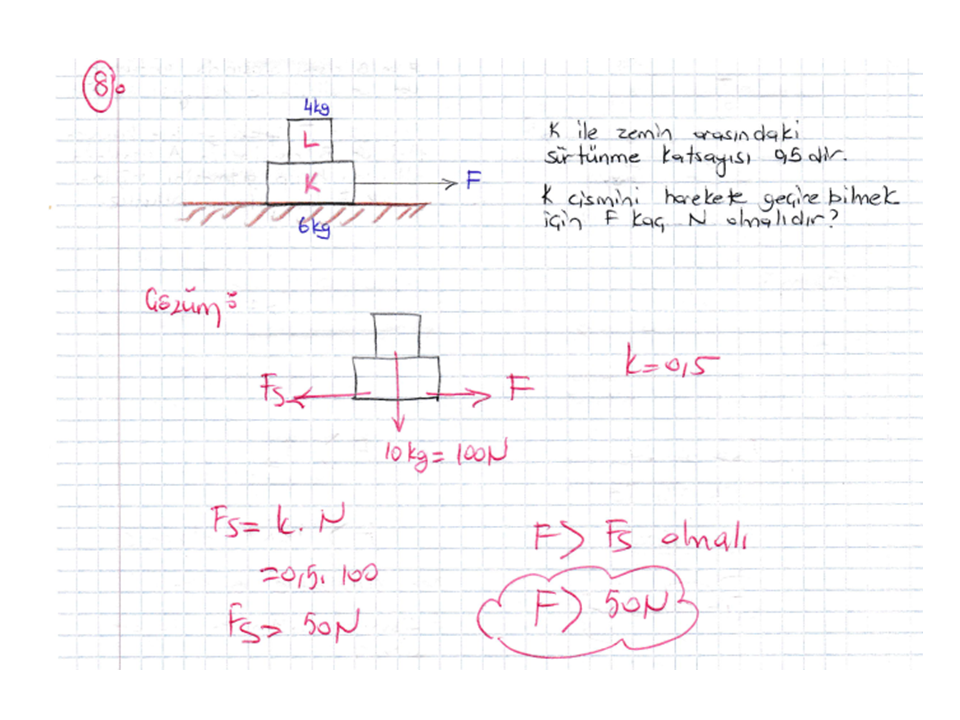 8.
4kg
L
K
F
6kg
K ile zemin arasındaki
sürtünme katsayısı 0,5 dir.
K cismini harekete geçire bilmek
için F kaç N olmalıdır?
Çözüm:
Fs
F
k=0,5
10kg=100N
Fs= k. N
=0,5. 100
Fs= 50N
F> Fs olmalı
F> 50N